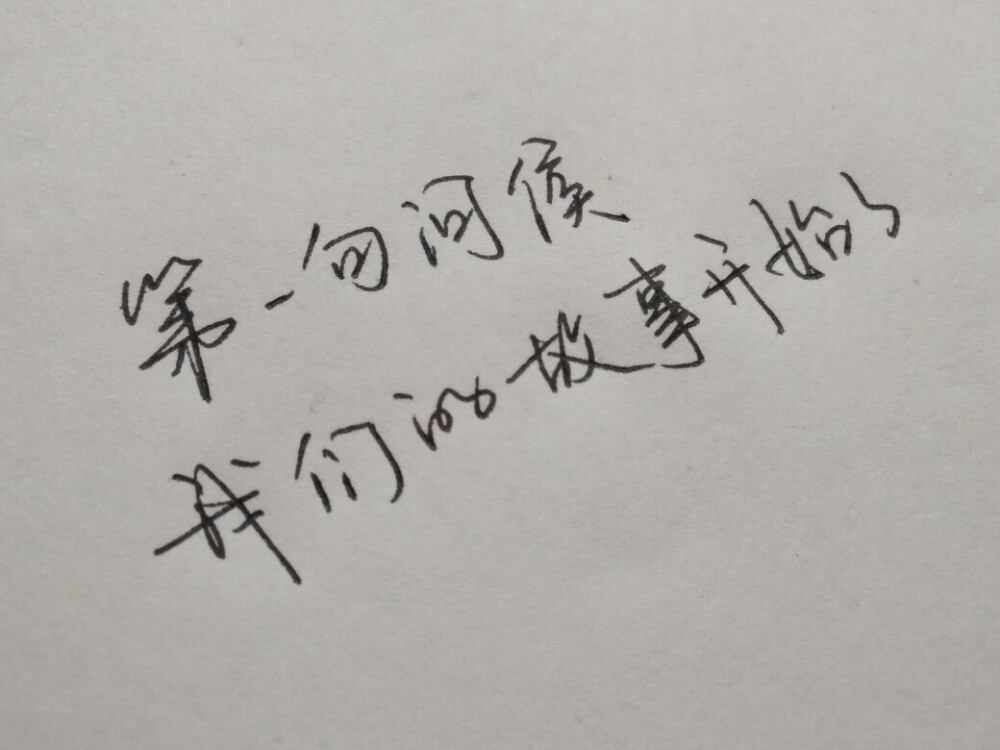 第一句问候
我们的故事开始了